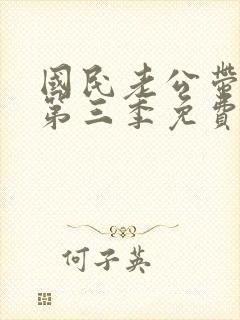 國民老公帶
第三季免費
何子英